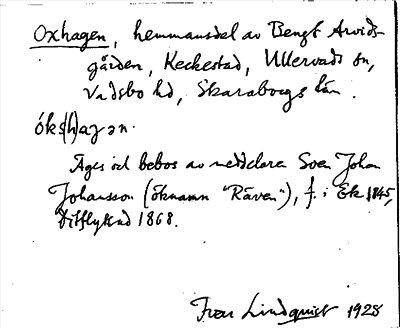 Oxhagen, hemmansdel av Bengt Arvids-
gården, Keckestad, Ullervads sn,
Vadsbo hd, Skaraborgs län.
óks(h)aɡən.
Äges och bebos av meddelare Sven Johan
Johansson (öknamn "Räven"), f. i Ek 1845,
ditflyttad 1868.
Ivar Lindquist 1928